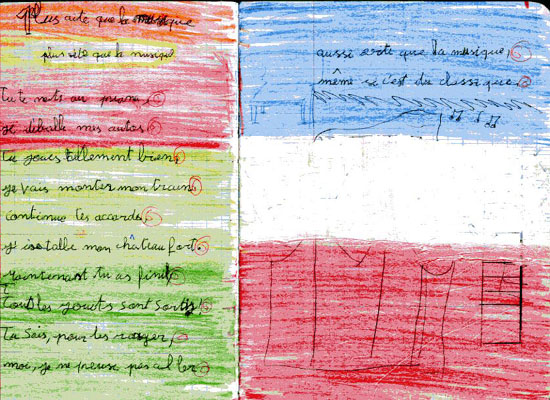 Plus vite que la musique
plus vite que la musique
tu te mets au piano,
je déballe mes autos
tu joues tellement bien,
je vais monter mon train
continue tes accords,
j'installe mon château fort.
Maintenant tu as fini
tout les jouets sont sortis
Tu sais, pour les ranger,
moi, je ne pense pas aller
aussi vite que la musique,
même si c'est du classique.